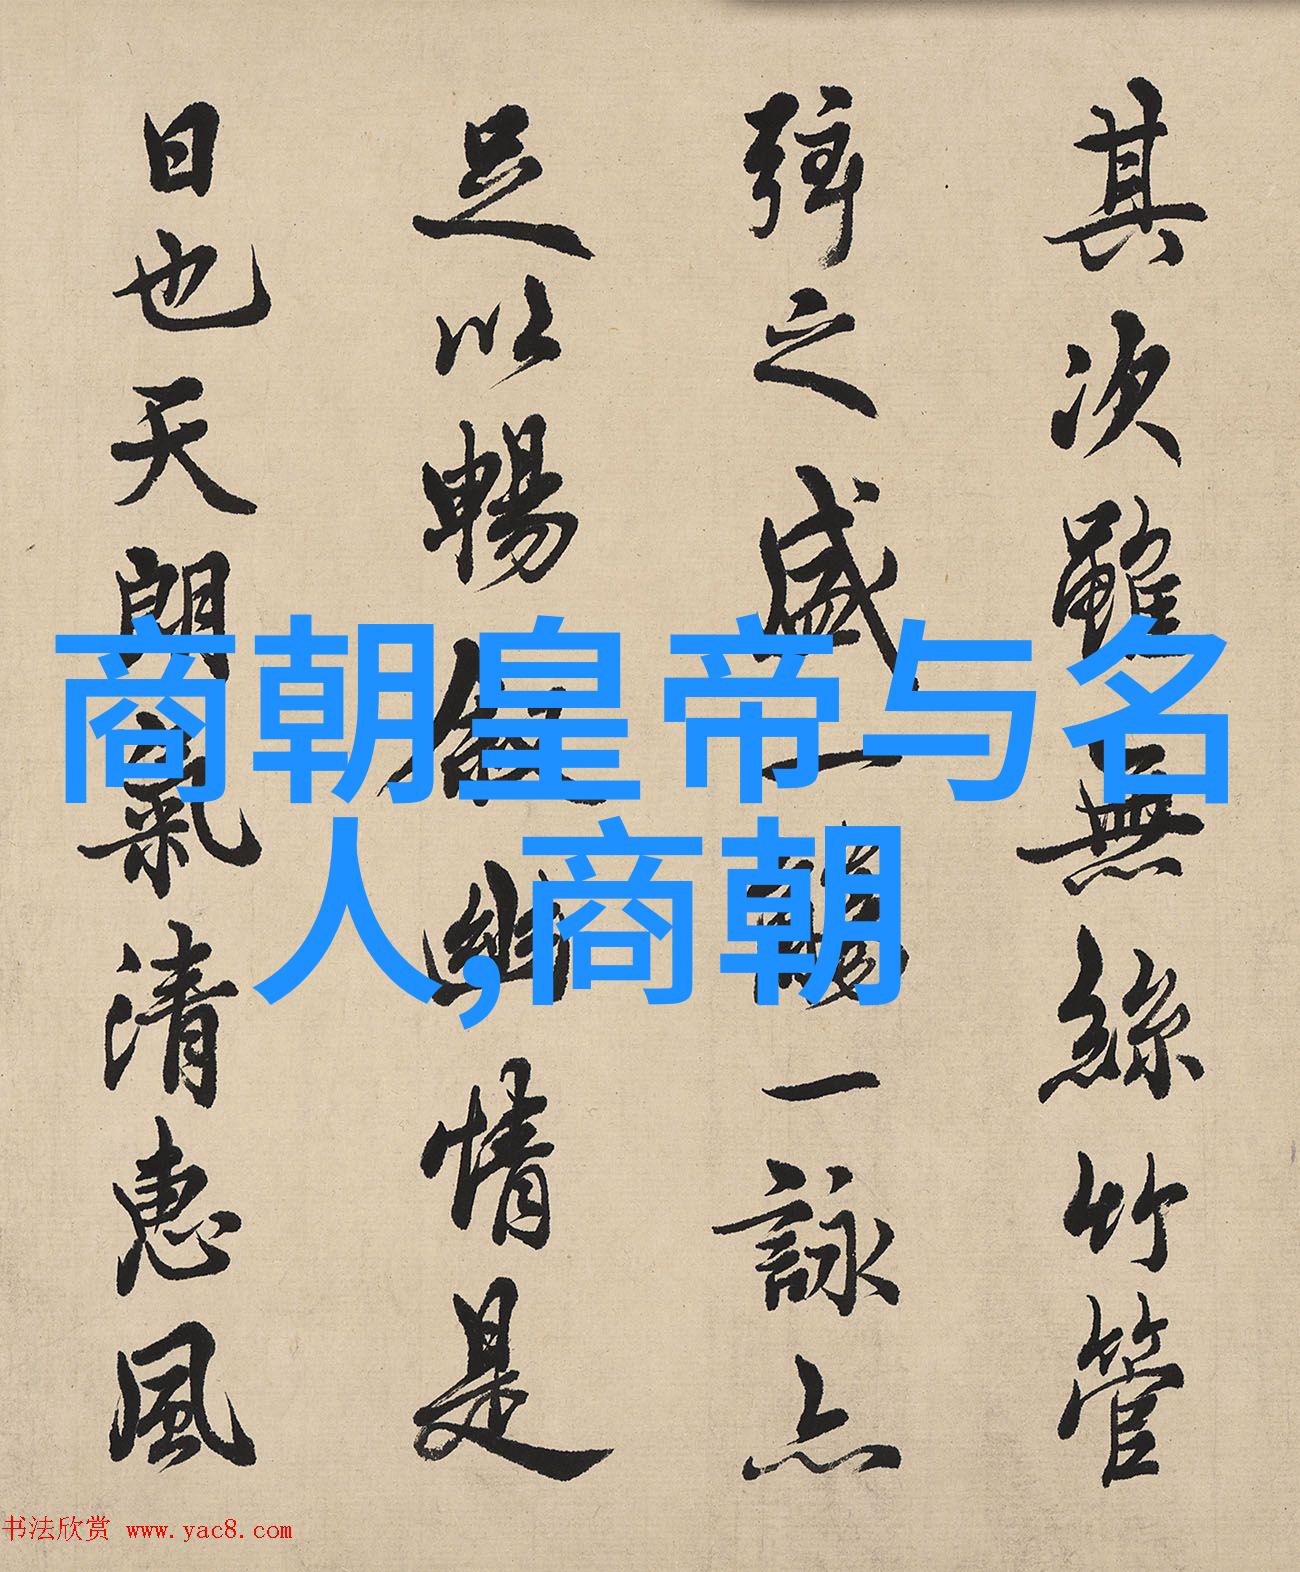 其次雖無絲竹管
弦之盛一觴一詠亦
足以暢敘幽情是
日也天朗氣清惠風
商朝皇帝与名
人,商朝
书法欣赏 www.yac8.com